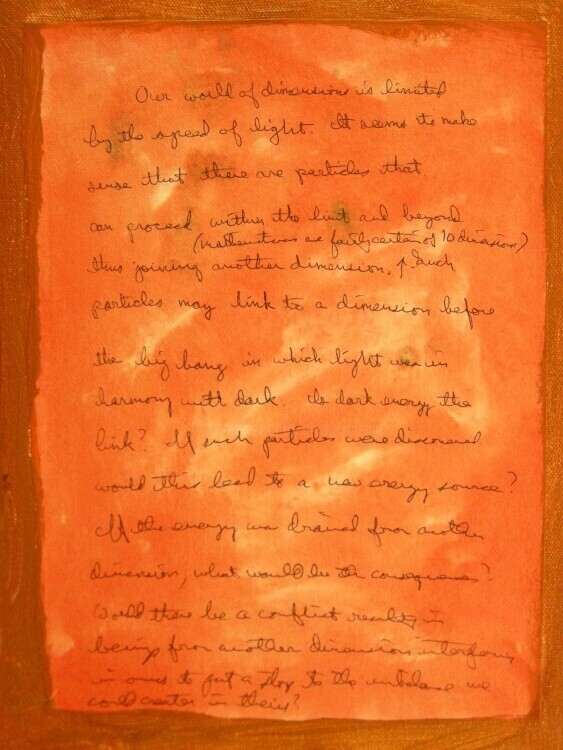 Our world of dimensions is limited
by the speed of light. It seems to make
sense that there are particles that
can proceed within the limit and beyond
(mathematicians are fairly certain of 10 dimensions)
thus joining another dimension. Such
particles may link to a dimension before
the big bang in which light was in
harmony with dark. Is dark energy the
link? If such particles were discovered
would this lead to a new energy source?
If the energy was drained from another
dimension, what would be the consequences?
Would there be a conflict resulting in
beings from another dimension interfering
in ours to put a stop to the imbalance we
could create in theirs?